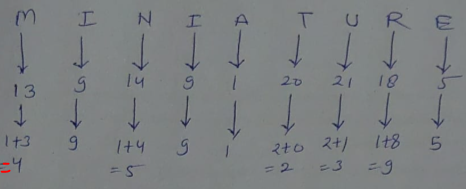 M I N I A T U R E
13 9 14 9 1 20 21 18 5
1+3 9 1+4 9 1 2+0 2+1 1+8 5
=4 =5 =2 =3 =9